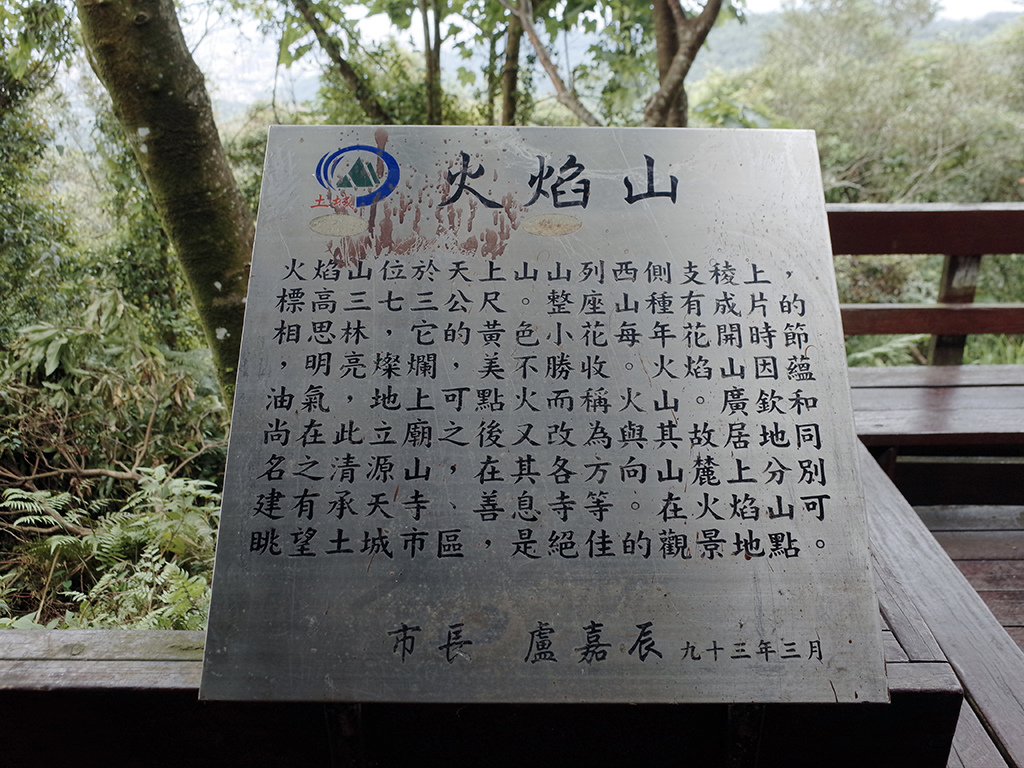 土城
火焰山
火焰山位於天上山山列西側支稜上，
標高三七三公尺。整座山種有成片的
相思林，它的黃色小花每年花開時節
，明亮燦爛，美不勝收。火焰山因蘊
油氣，地上可點火而稱火山。廣欽和
尚在此立廟之後又改為與其故居地同
名之清源山，在其各方向山麓上分別
建有承天寺、善息寺等。在火焰山可
眺望土城市區，是絕佳的觀景地點。
市長 盧嘉辰 九十三年三月